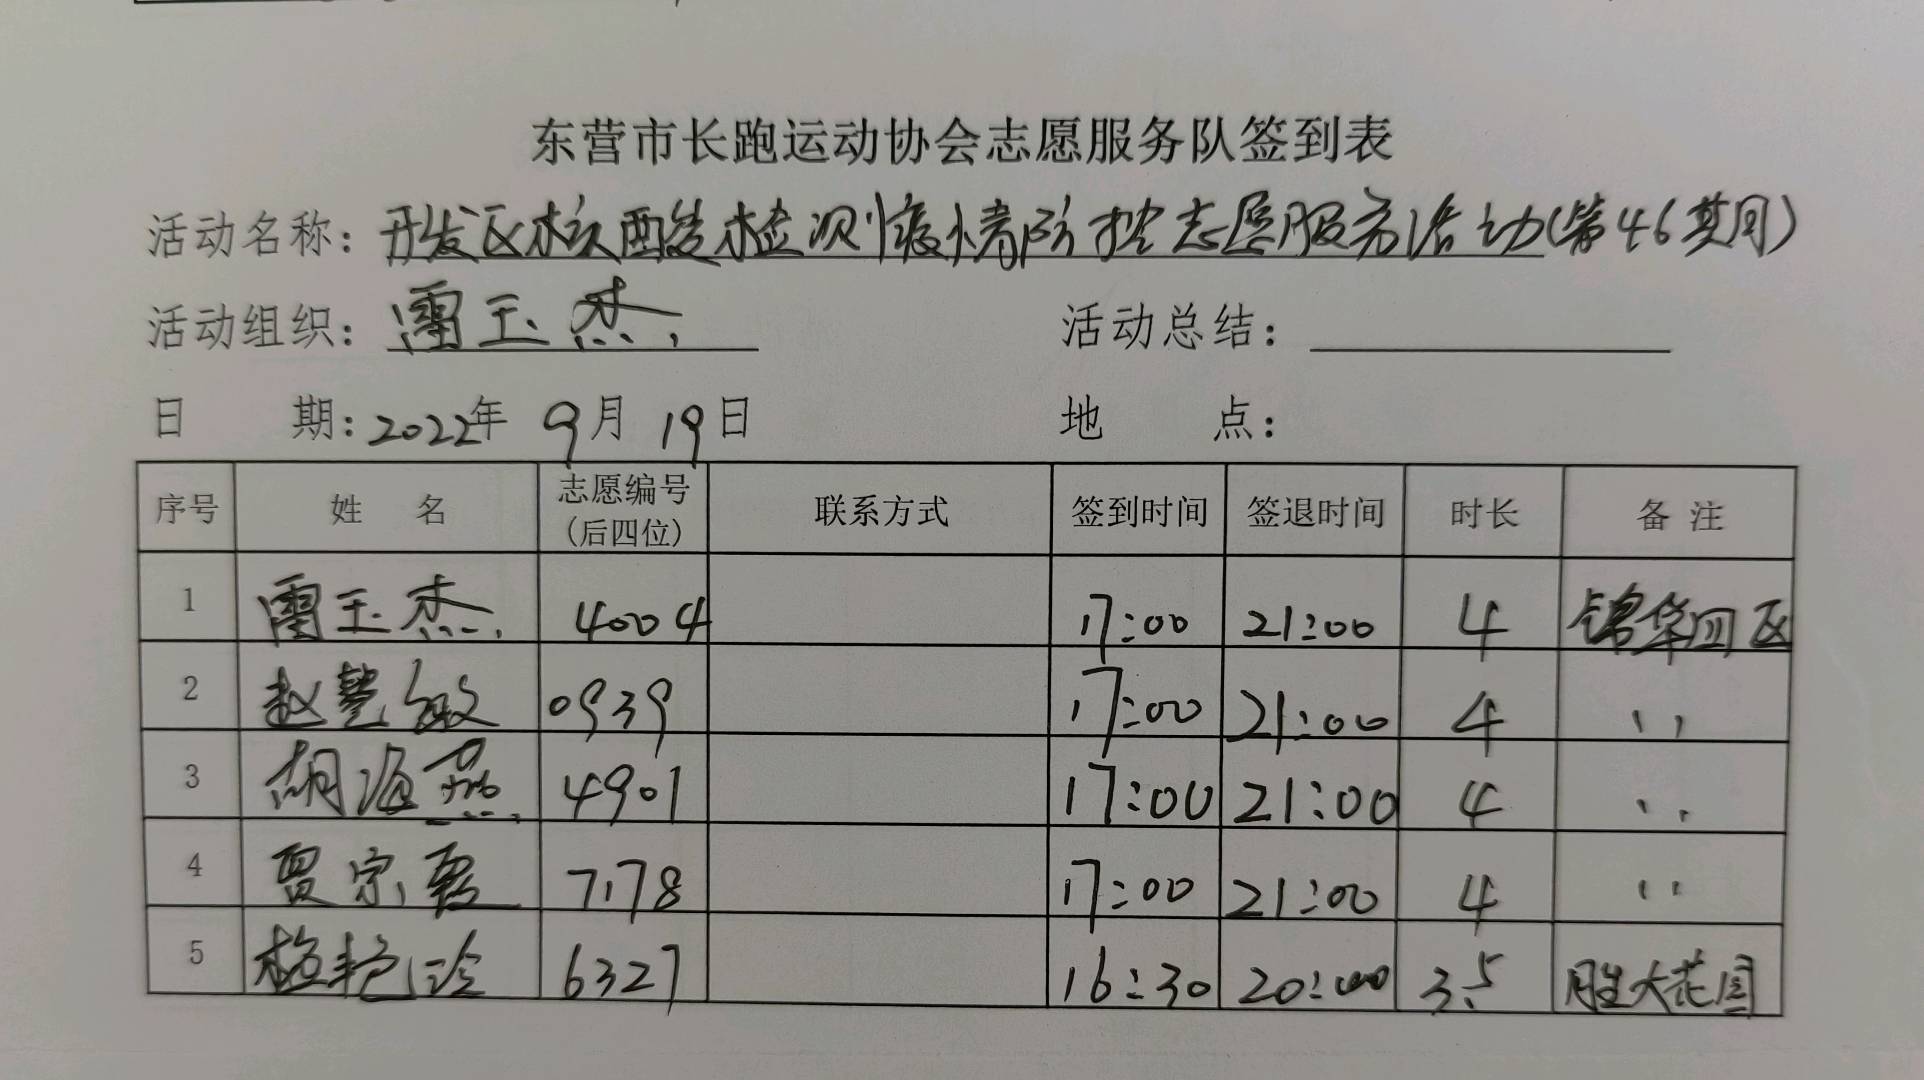 东营市长跑运动协会志愿服务队签到表
活动名称：开发区核酸检测疫情防控志愿服务活动(第46期)
活动组织：雷玉杰 活动总结：
日 期：2022年 9月 19日 地 点：
序号 姓 名 志愿编号（后四位） 联系方式 签到时间 签退时间 时长 备 注
1 雷玉杰 4004 17:00 21:00 4 锦华四区
2 赵慧敏 0939 17:00 21:00 4 〃
3 胡海燕 4901 17:00 21:00 4 〃
4 贾宗 7178 17:00 21:00 4 〃
5 艳玲 6327 16:30 20:00 3.5 胜大花园